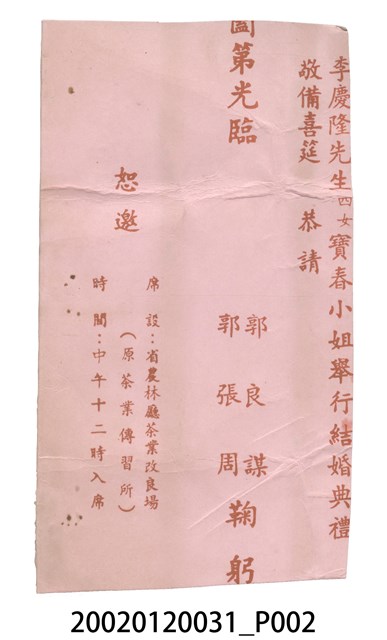 李慶隆先生四女寶春小姐舉行結婚典禮
敬備喜筵 恭請
闔第光臨
郭良謀
郭張周 鞠躬
恕邀
席設：省農林廳茶業改良場
（原茶業傳習所）
時間：中午十二時入席
20020120031_P002